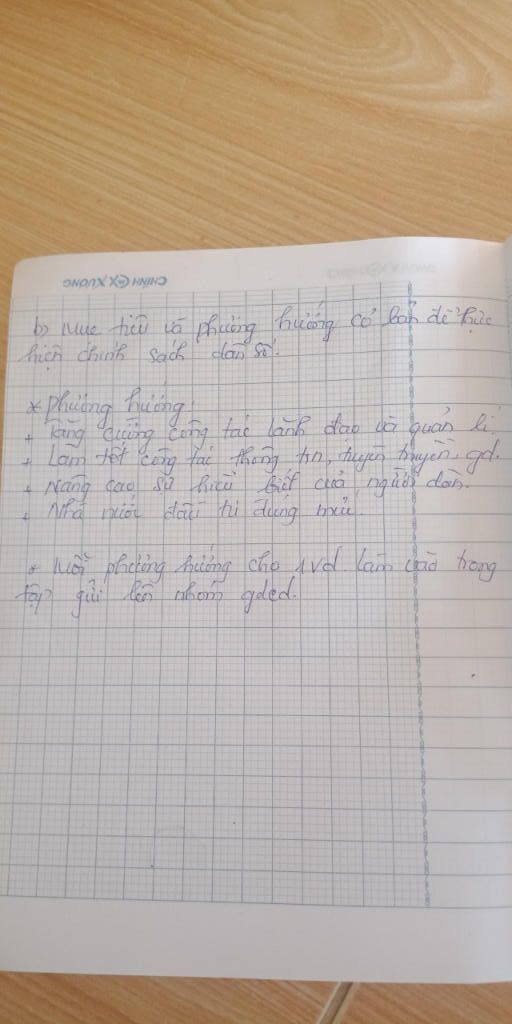 CHINH XUONG
b) Mục tiêu và phương hướng cơ bản để thực
hiện chính sách dân số.
* Phương hướng:
+ Tăng cường công tác lãnh đạo và quản lí.
+ Làm tốt công tác thông tin, tuyên truyền, gd.
+ Nâng cao sự hiểu biết của người dân.
+ Nhà nước đầu tư đúng mức.
* Mỗi phương hướng cho 1vd làm vào trong
tập gửi lên nhóm gdcd.